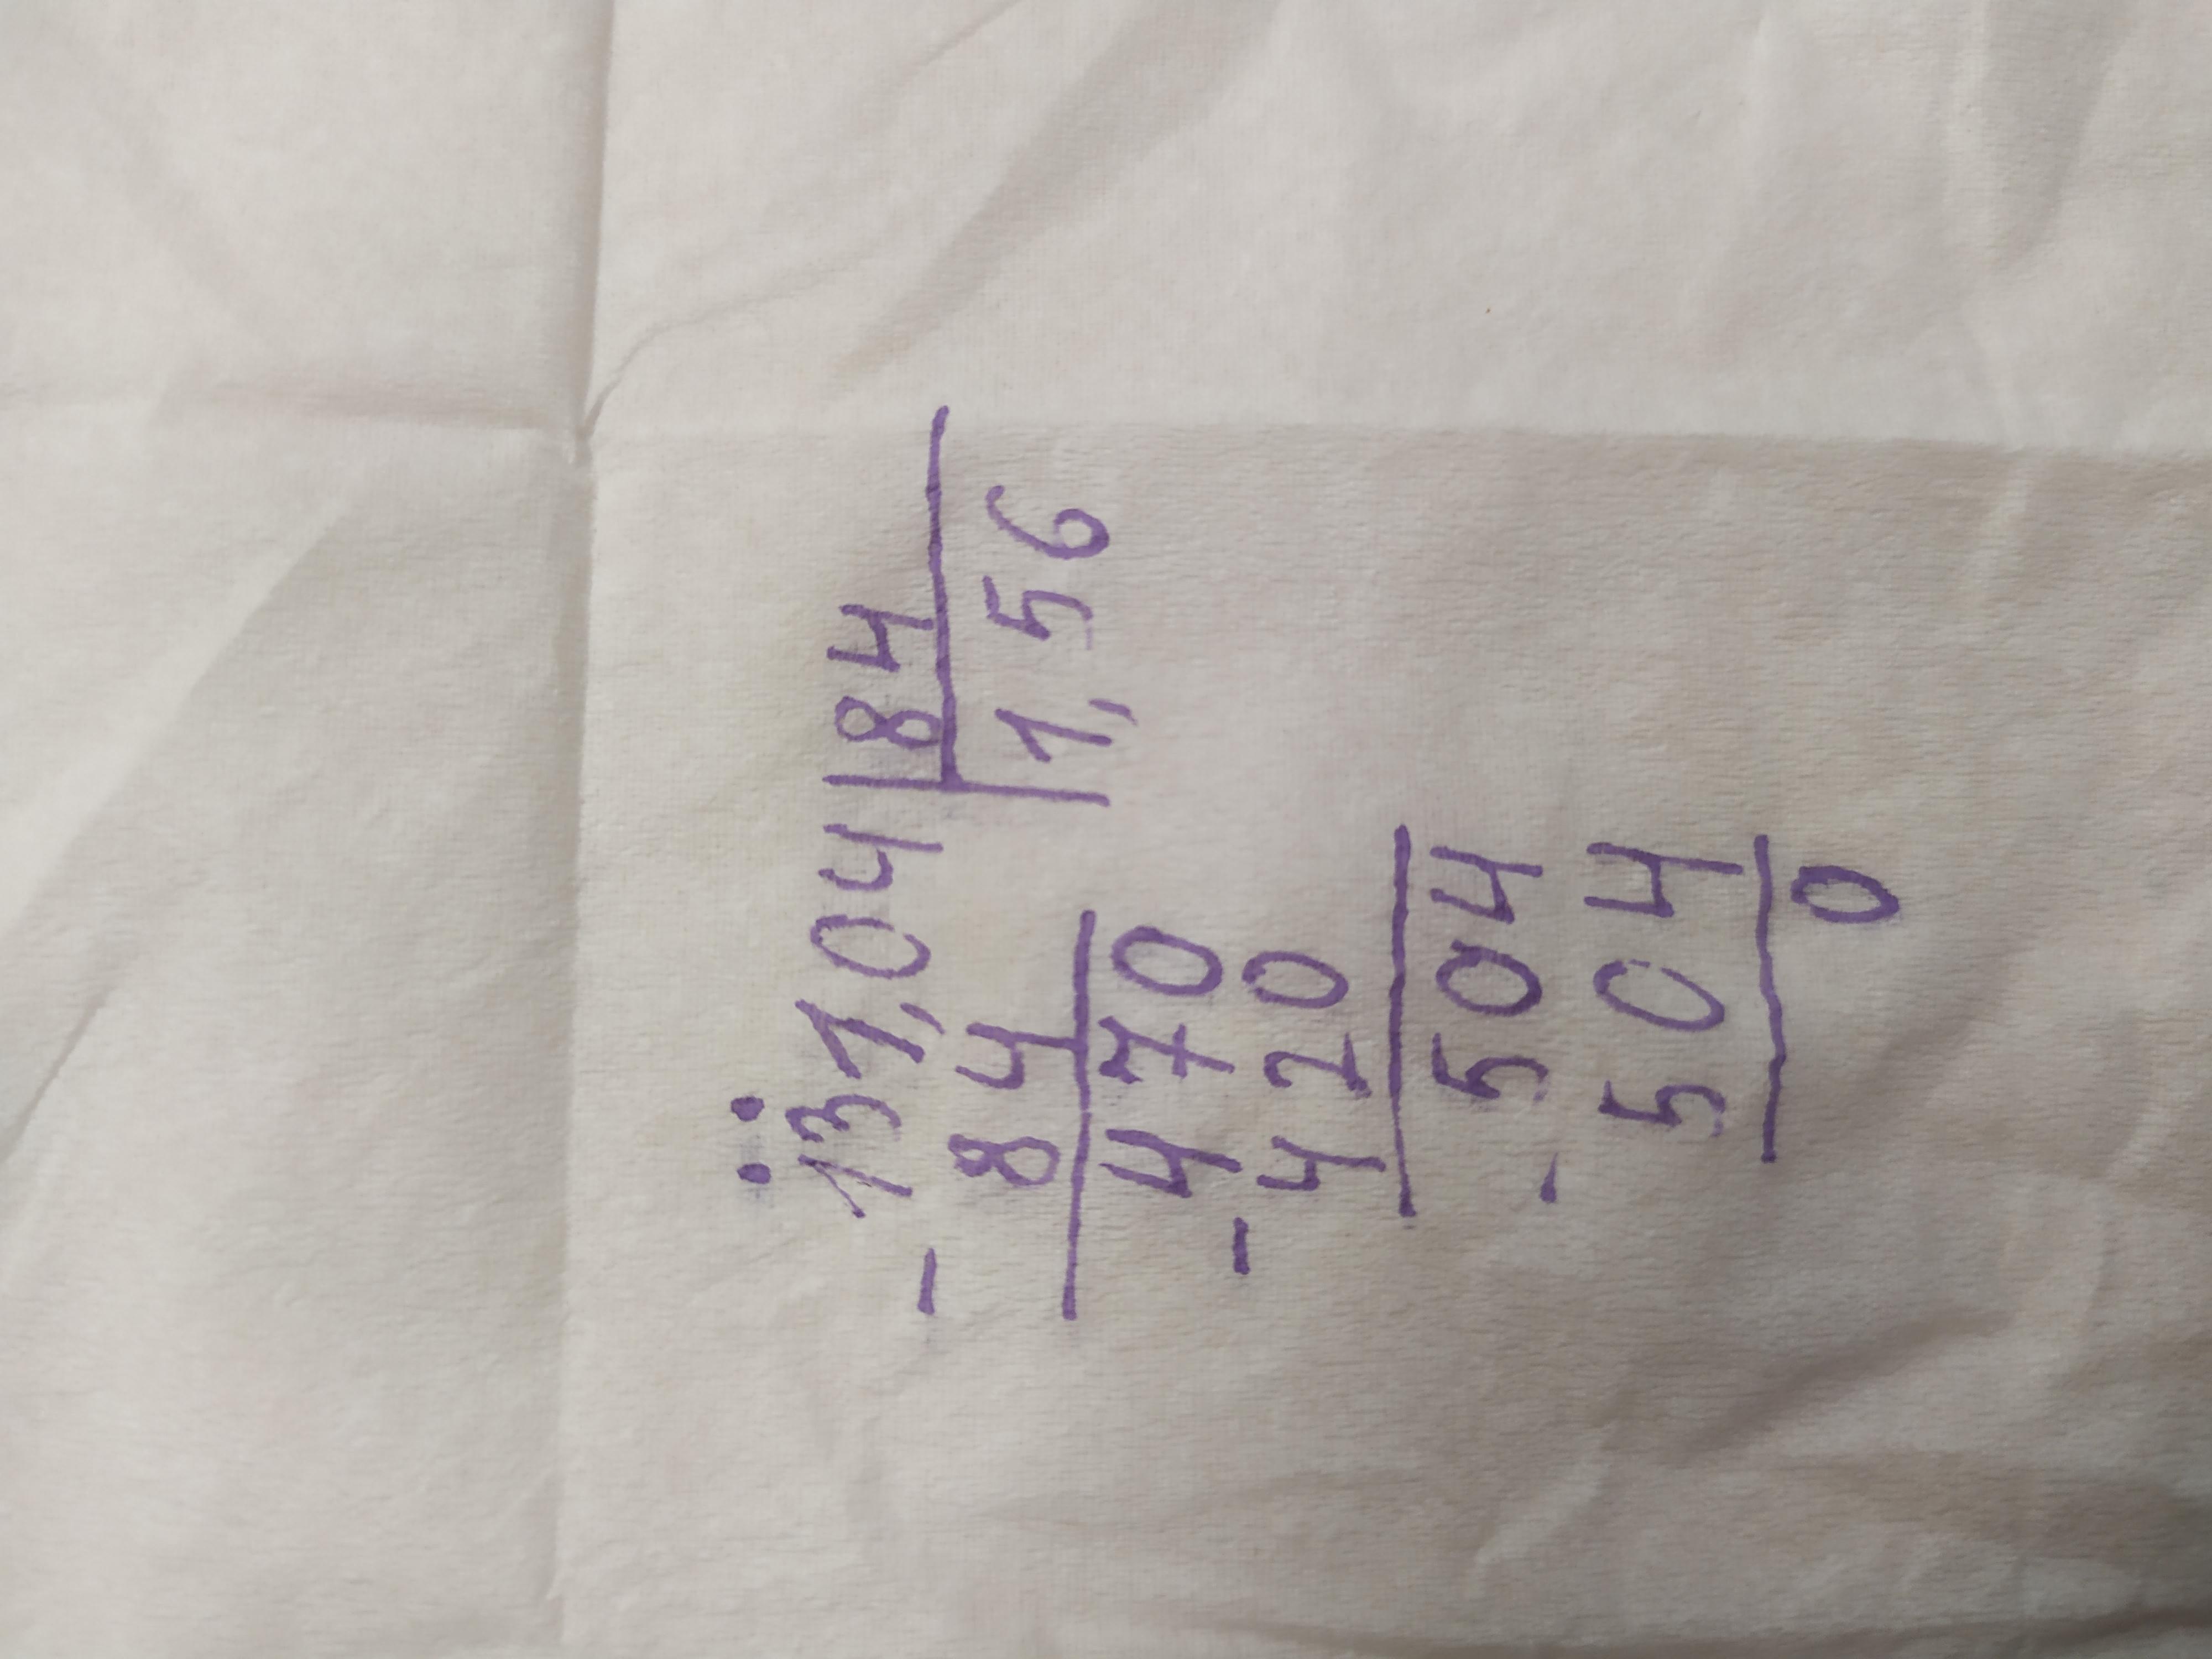 131,04 | 84
- 84 | 1,56
470
- 420
504
- 504
0